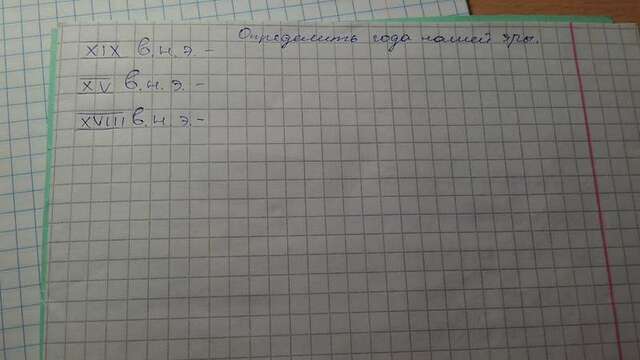 Определить года нашей эры.
XIX в. н. э. -
XV в. н. э. -
XVIII в. н. э. -